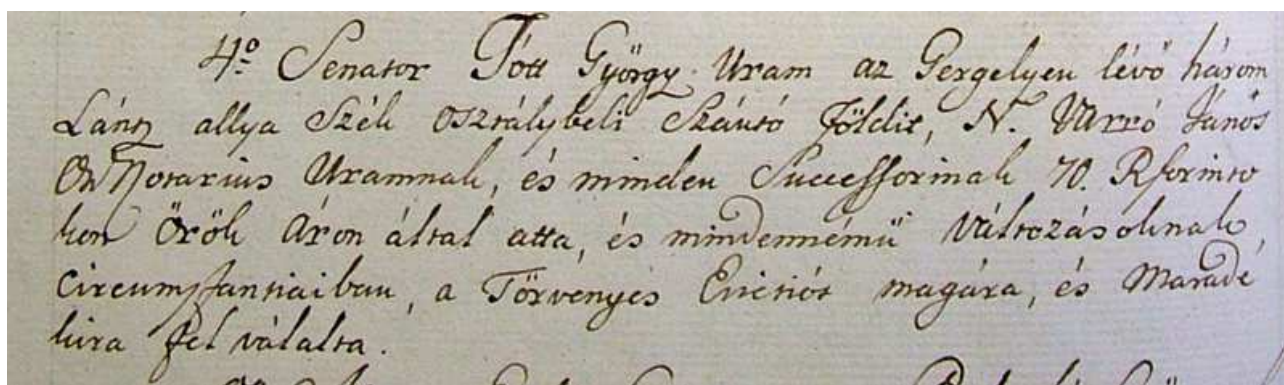 4º Senator Tótt György Uram az Gergelyen lévő három
Lántz allya Szék osztálybeli Szántó Földit, N. Varró János
Ord Notarius Uramnak, és minden Successorinak 70. Rforinto
kon Örök Áron által atta, és mindennémű Változásoknak,
Circumstantiaiban, a Törvényes Evictiót magára, és Maradé
kira fel válalta.